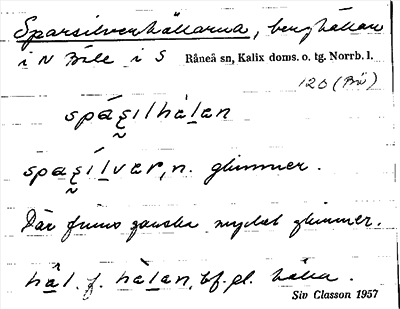 Sparsilverhällarna, berghällar
i N Böle i S Råneå sn, Kalix doms. o. tg. Norrb. l.
120 (Bö)
spás̰ılhàlan
spas̰ílvar, n. glimmer.
Där finns ganska mycket glimmer.
hâl. f. hàlan, bf. pl. hälla.
Siv Classon 1957